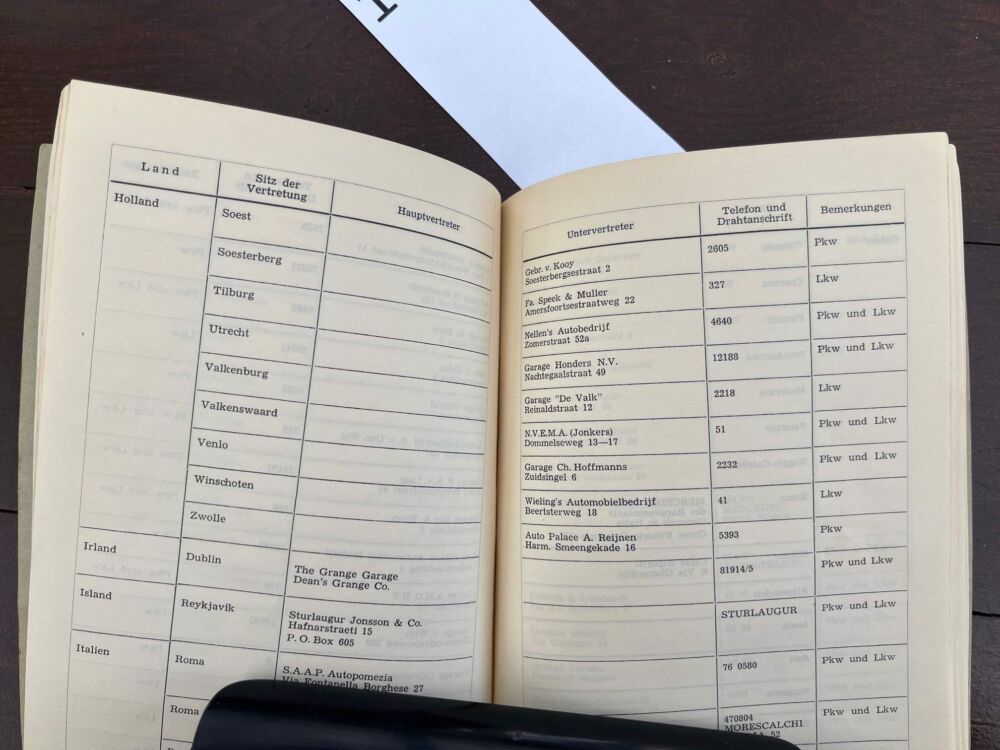 1
Land
Sitz der
Vertretung
Hauptvertreter
Untervertreter
Telefon und
Drahtanschrift
Bemerkungen
Holland
Soest
Gebr. v. Kooy
Soesterbergsestraat 2
2605
Pkw
Soesterberg
Fa. Speek & Muller
Amersfoortsestraatweg 22
327
Lkw
Tilburg
Nellen's Autobedrijf
Zomerstraat 52a
4640
Pkw und Lkw
Utrecht
Garage Honders N.V.
Nachtegaalstraat 49
12188
Pkw und Lkw
Valkenburg
Garage "De Valk"
Reinaldstraat 12
2218
Lkw
Valkenswaard
N.V.E.M.A. (Jonkers)
Dommelseweg 13—17
51
Pkw und Lkw
Venlo
Garage Ch. Hoffmanns
Zuidsingel 6
2232
Pkw und Lkw
Winschoten
Wieling's Automobielbedrijf
Beertsterweg 18
41
Lkw
Zwolle
Auto Palace A. Reijnen
Harm. Smeengekade 16
5393
Pkw
Irland
Dublin
The Grange Garage
Dean's Grange Co.
81914/5
Pkw und Lkw
Island
Reykjavik
Sturlaugur Jonsson & Co.
Hafnarstraeti 15
P. O. Box 605
STURLAUGUR
Pkw und Lkw
Italien
Roma
S.A.A.P. Autopomezia
Via Fontanella Borghese 27
76 0580
Pkw und Lkw
Roma
470804
MORESCALCHI
52
Pkw und Lkw